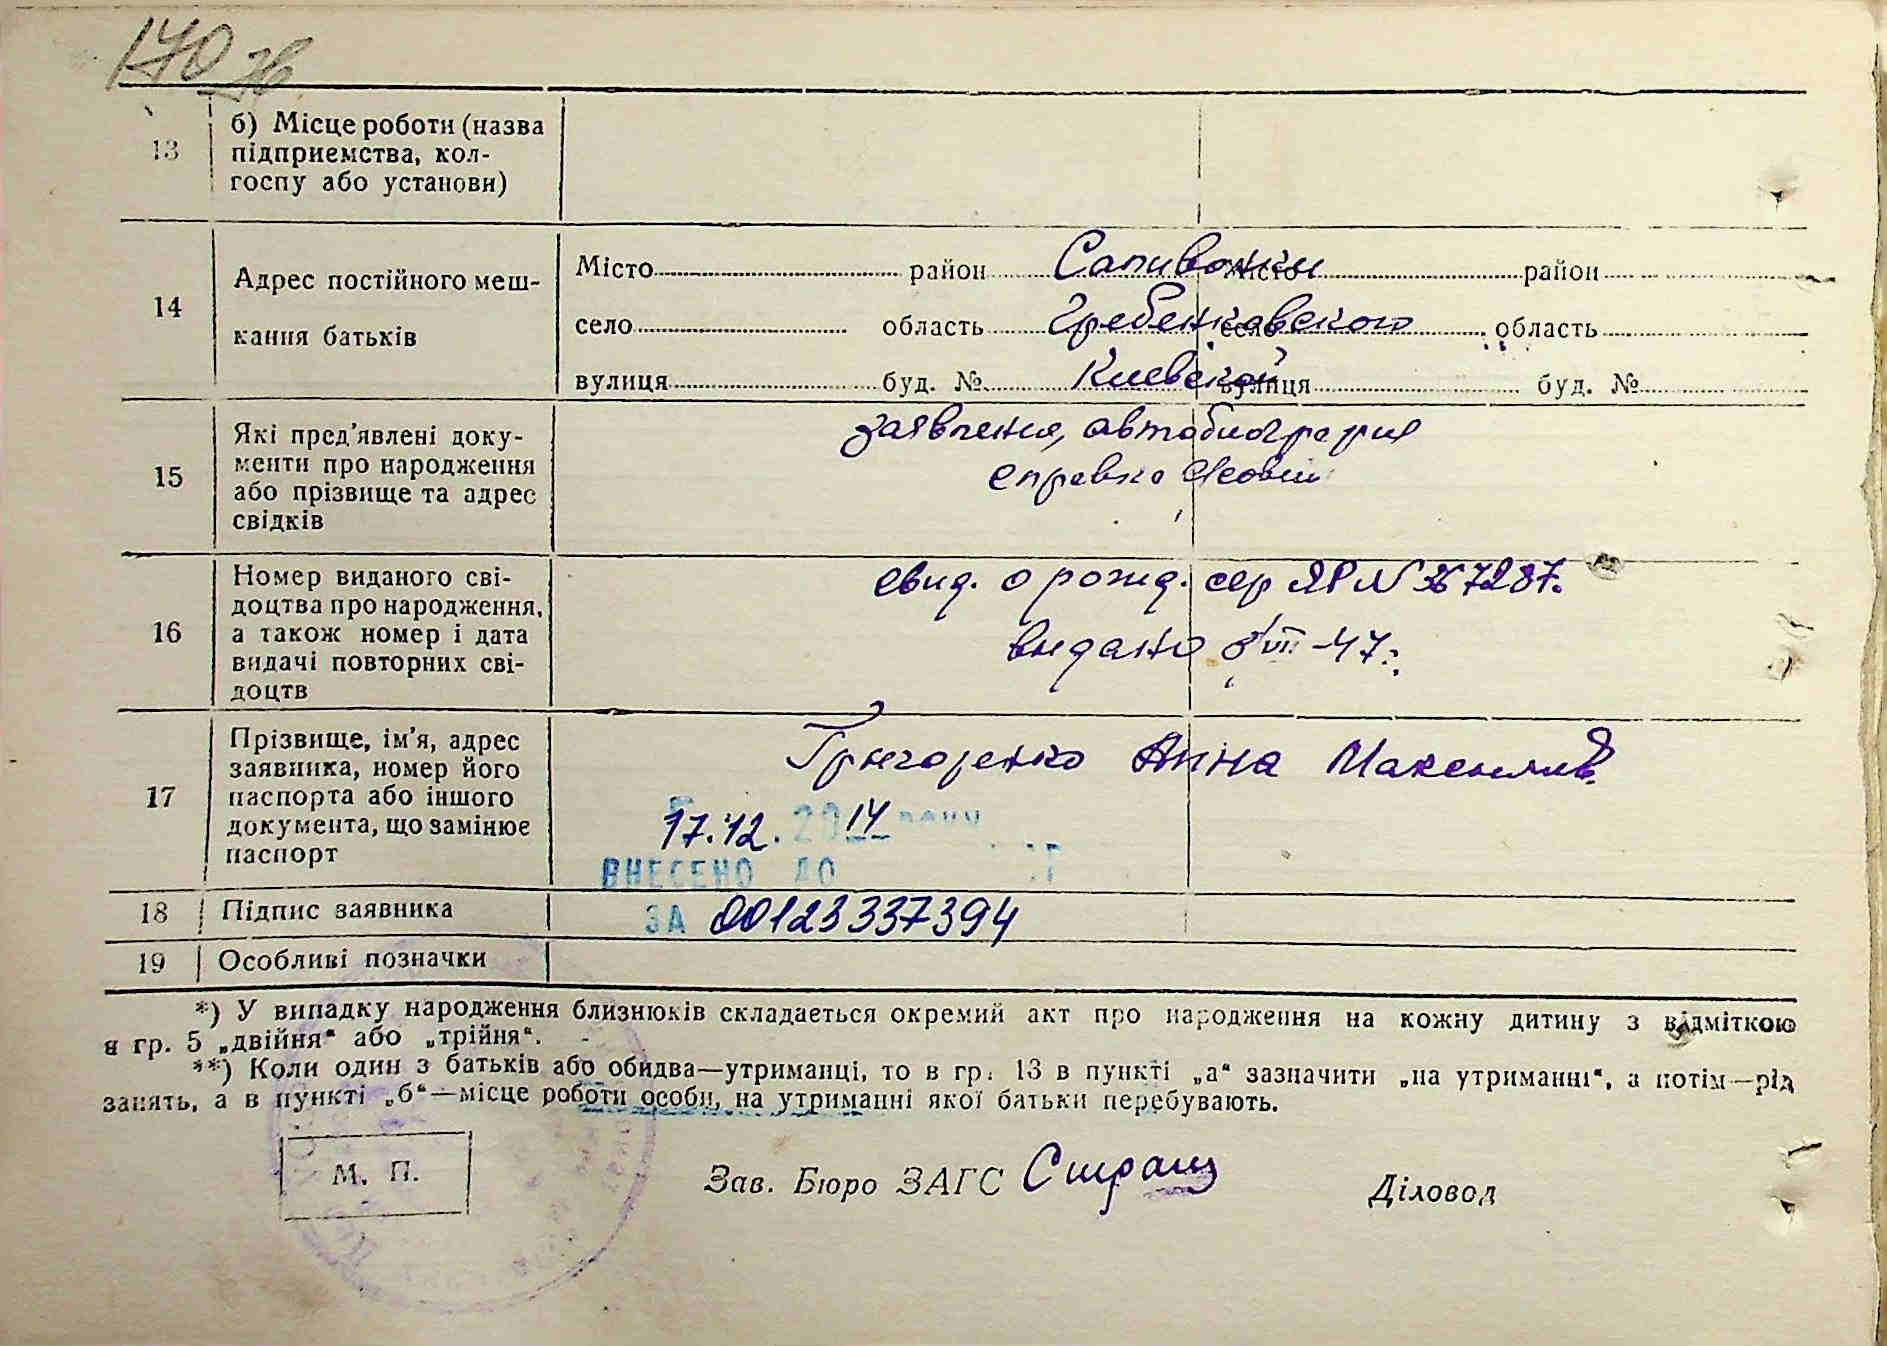 170 зв
13
б) Місце роботи (назва
підприємства, кол-
госпу або установи)
14
Адрес постійного меш-
кання батьків
Місто район Саливонки місто район
село область Гребенковского село область
вулиця буд. № Киевской вулиця буд. №
15
Які пред'явлені доку-
менти про народження
або прізвище та адрес
свідків
заявления, автобиография
справка
16
Номер виданого сві-
доцтва про народження,
а також номер і дата
видачі повторних сві-
доцтв
свид. о рожд. сер ЯР N 367287.
видано 8/VII-47г.
17
Прізвище, ім'я, адрес
заявника, номер його
паспорта або іншого
документа, що замінює
паспорт
Григоренко Анна Максимов.
17.12. 2014 року
ВНЕСЕНО ДО
18
Підпис заявника
ЗА 00123337394
19
Особливі позначки
*) У випадку народження близнюків складається окремий акт про народження на кожну дитину з відміткою
в гр. 5 „двійня“ або „трійня“.
**) Коли один з батьків або обидва—утриманці, то в гр. 13 в пункті „а“ зазначити „на утриманні“, а потім—рід
занять, а в пункті „б“—місце роботи особи, на утриманні якої батьки перебувають.
М. П.
Зав. Бюро ЗАГС
Діловод